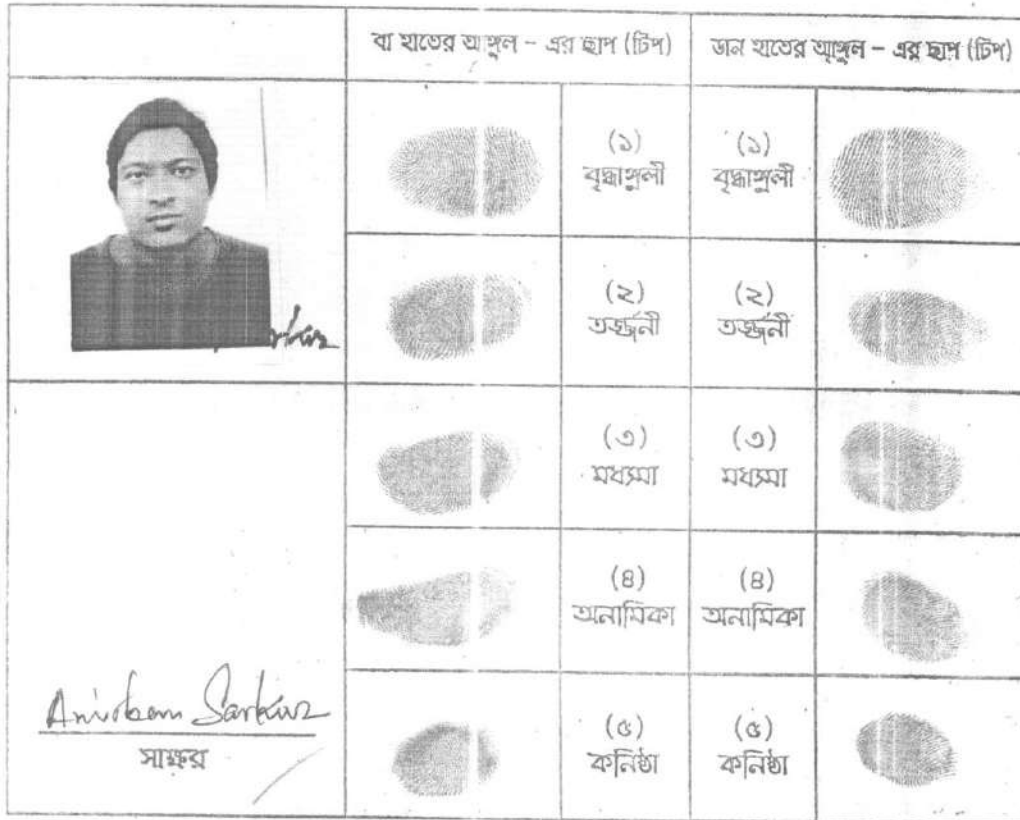 বা হাতের আঙ্গুল - এর ছাপ (টিপ)
ডান হাতের আঙ্গুল - এর ছাপ (টিপ)
(১)
বৃদ্ধাঙ্গুলী
(১)
বৃদ্ধাঙ্গুলী
(২)
তর্জ্জনী
(২)
তর্জ্জনী
(৩)
মধ্যমা
(৩)
মধ্যমা
(৪)
অনামিকা
(৪)
অনামিকা
(৫)
কনিষ্ঠা
(৫)
কনিষ্ঠা
Anirban Sarkar
সাক্ষর